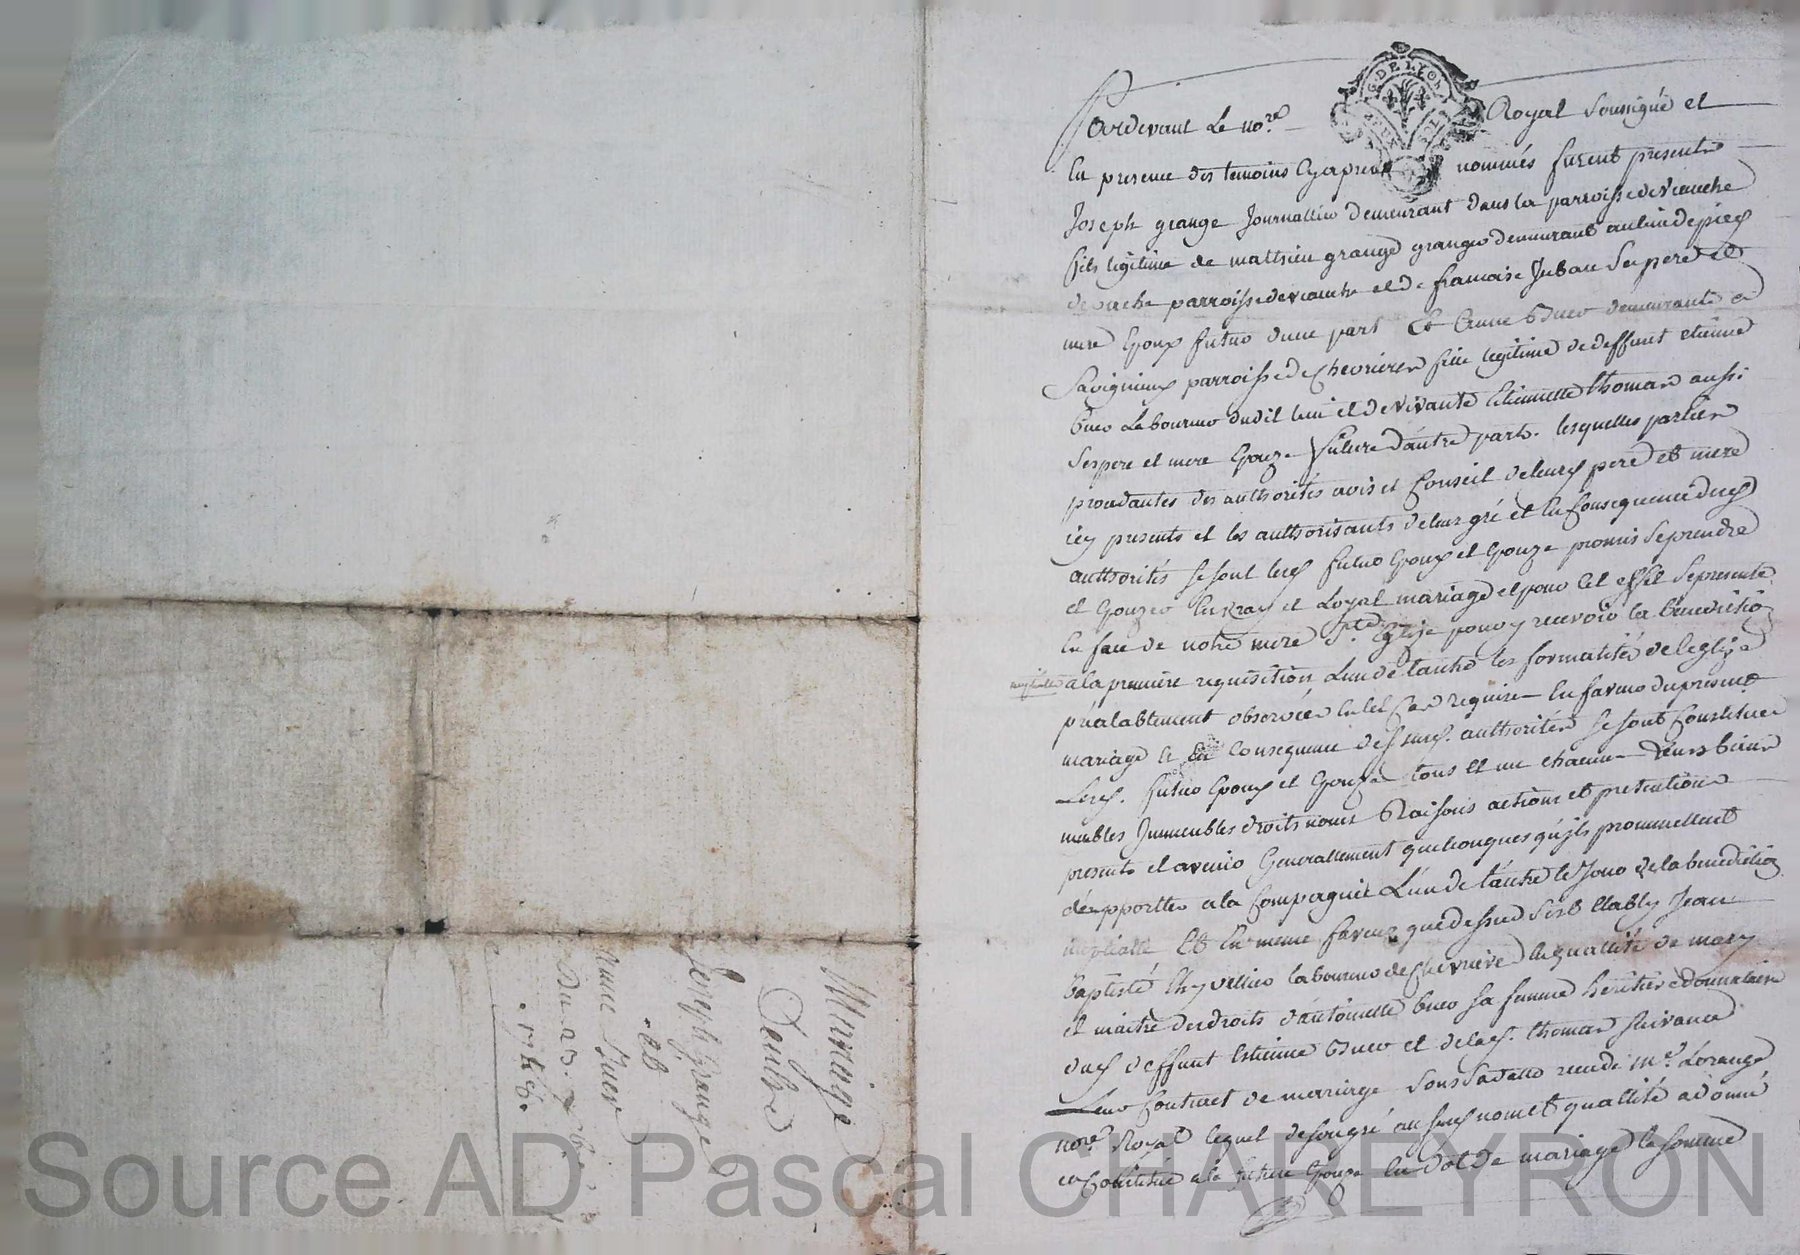 G. DE LYON
Pardevant Le no.re Royal Soussigné et
En presence des temoins Cyapres nommés furent presents
Joseph grange Journallier demeurant dans la parroisse de
fils legitime de mathieu grange granger demeurant au lieu de
parroisse de et de francoise Juban Ses pere et
mere Epoux futur dune part Et Anne Buer demeurante a
Savignieux parroisse de Chevrieres fille legitime de deffunt etienne
Buer Laboureur dudit lieu et de vivante Etiennette thomas aussi
Ses pere et mere Epouze future d'autre part. lesquelles parties
proceddantes des authorités avis et Conseil de leurs pere et mere
icy presents et les authorisants de leur gré et En Consequence dues
authorités Se sont lesd futur Epoux et Epouze promis Se prendre
et Epouzer En vray et Loyal mariage et pour Cet effet Se presenter
En face de notre mere S.te Eglize pour y recevoir la benediction
nuptialle a la premiere requisition L'un de l'autre les formalités de leglize
préalablement observées En tel Cas requise En faveur du present
mariage et En Consequence des susd. authorités Se sont Constitués
Lesd. futur Epoux et Epouze tous et un chacun Leurs biens
meubles Immeubles droits noms Raisons actions et pretentions
presents et avenir Generallement quelconques qu'ils promettent
d'epportter a la Compagnie L'un de l'autre le Jour de la benediction
nuptialle Et En meme faveur que dessus S'est Etably Jean
Baptiste laboureur de Chevrieres En quallité de mary
et maitre des droits d'antoinette Buer Sa femme heritiere donnataire
dud deffunt Estienne Buer et de lad. thomas Suivance
Leur Contract de mariage Sous Sa datte receu M.e Lorange
no.re Royal lequel de son gré auxsusd nom et quallité a donné
et Constitué a la future Epouze En dot de mariage la Somme
Mariage
D'entre
Joseph Grange
et
Anne Buer
Du 23. 7bre
1786.
Source AD Pascal CHAREYRON